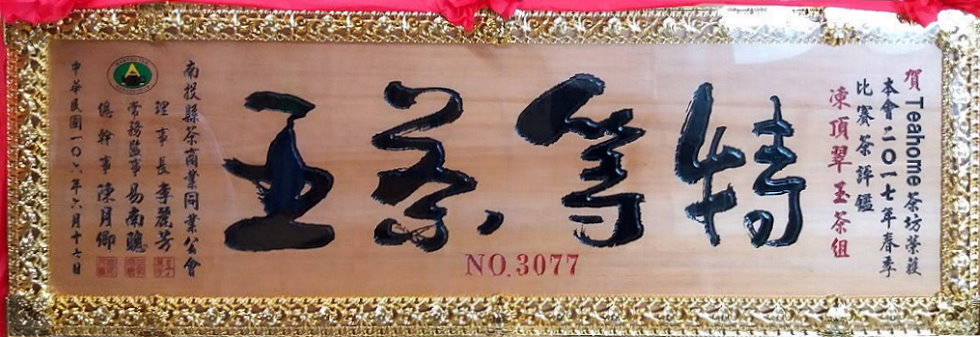 賀 Teahome 茶坊榮獲
本會二〇一七年春季
比賽茶評鑑
凍頂翠玉茶組
特等茶王
NO.3077
南投縣茶商業同業公會
理事長 李麗芳
常務監事 易南聰
總幹事 陳月卿
中華民國一〇六年六月十七日